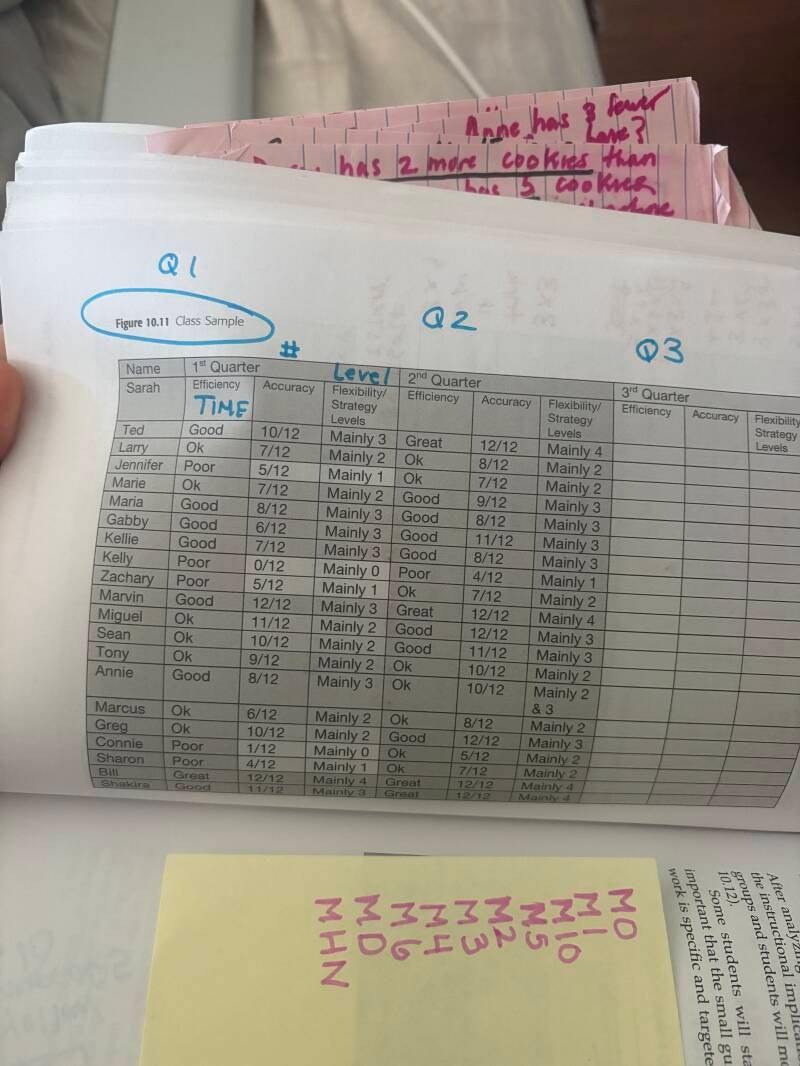 Anne has 3 fewer
has 2 more cookies than
has 5 cookies
Q1
Q2
Q3
Figure 10.11 Class Sample
#
Level
Name 1st Quarter 2nd Quarter 3rd Quarter
Sarah Efficiency Accuracy Flexibility/ Efficiency Accuracy Flexibility/ Efficiency Accuracy Flexibility
TIME Strategy Strategy Strategy
Levels Levels Levels
Ted Good 10/12 Mainly 3 Great 12/12 Mainly 4
Larry Ok 7/12 Mainly 2 Ok 8/12 Mainly 2
Jennifer Poor 5/12 Mainly 1 Ok 7/12 Mainly 2
Marie Ok 7/12 Mainly 2 Good 9/12 Mainly 3
Maria Good 8/12 Mainly 3 Good 8/12 Mainly 3
Gabby Good 6/12 Mainly 3 Good 11/12 Mainly 3
Kellie Good 7/12 Mainly 3 Good 8/12 Mainly 3
Kelly Poor 0/12 Mainly 0 Poor 4/12 Mainly 1
Zachary Poor 5/12 Mainly 1 Ok 7/12 Mainly 2
Marvin Good 12/12 Mainly 3 Great 12/12 Mainly 4
Miguel Ok 11/12 Mainly 2 Good 12/12 Mainly 3
Sean Ok 10/12 Mainly 2 Good 11/12 Mainly 3
Tony Ok 9/12 Mainly 2 Ok 10/12 Mainly 2
Annie Good 8/12 Mainly 3 Ok 10/12 Mainly 2
& 3
Marcus Ok 6/12 Mainly 2 Ok 8/12 Mainly 2
Greg Ok 10/12 Mainly 2 Good 12/12 Mainly 3
Connie Poor 1/12 Mainly 0 Ok 5/12 Mainly 2
Sharon Poor 4/12 Mainly 1 Ok 7/12 Mainly 2
Bill Great 12/12 Mainly 4 Great 12/12 Mainly 4
Shakira Good 11/12 Mainly 3 Great 12/12 Mainly 4
M0
M1
M10
M5
M2
M3
M4
M6
MD
MHN
After analyzing
the instructional implica
groups and students will mo
10.12).
Some students will sta
important that the small gu
work is specific and targete